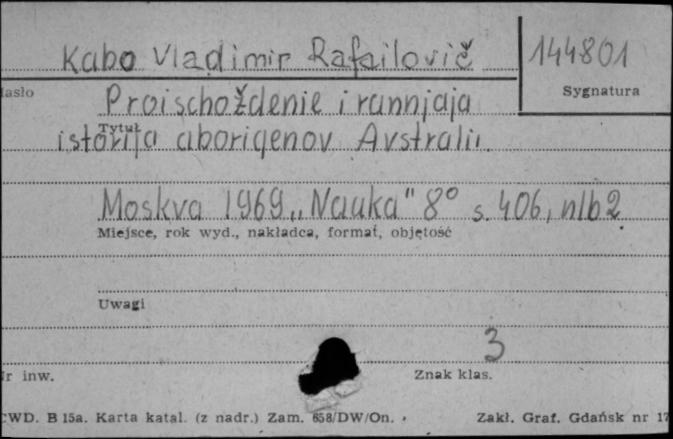 Kabo Vladimir Rafailovič 144801
asło Sygnatura
Proischoždenie i rannjaja
Tytuł
istorija aborigenov Avstralii.
Moskva 1969 „Nauka" 8° s. 406, nlb 2
Miejsce, rok wyd., nakładca, format, objętość
Uwagi
3
r inw. Znak klas.
WD. B 15a. Karta katal. (z nadr.) Zam. 658/DW/On. Zakł. Graf. Gdańsk nr 17